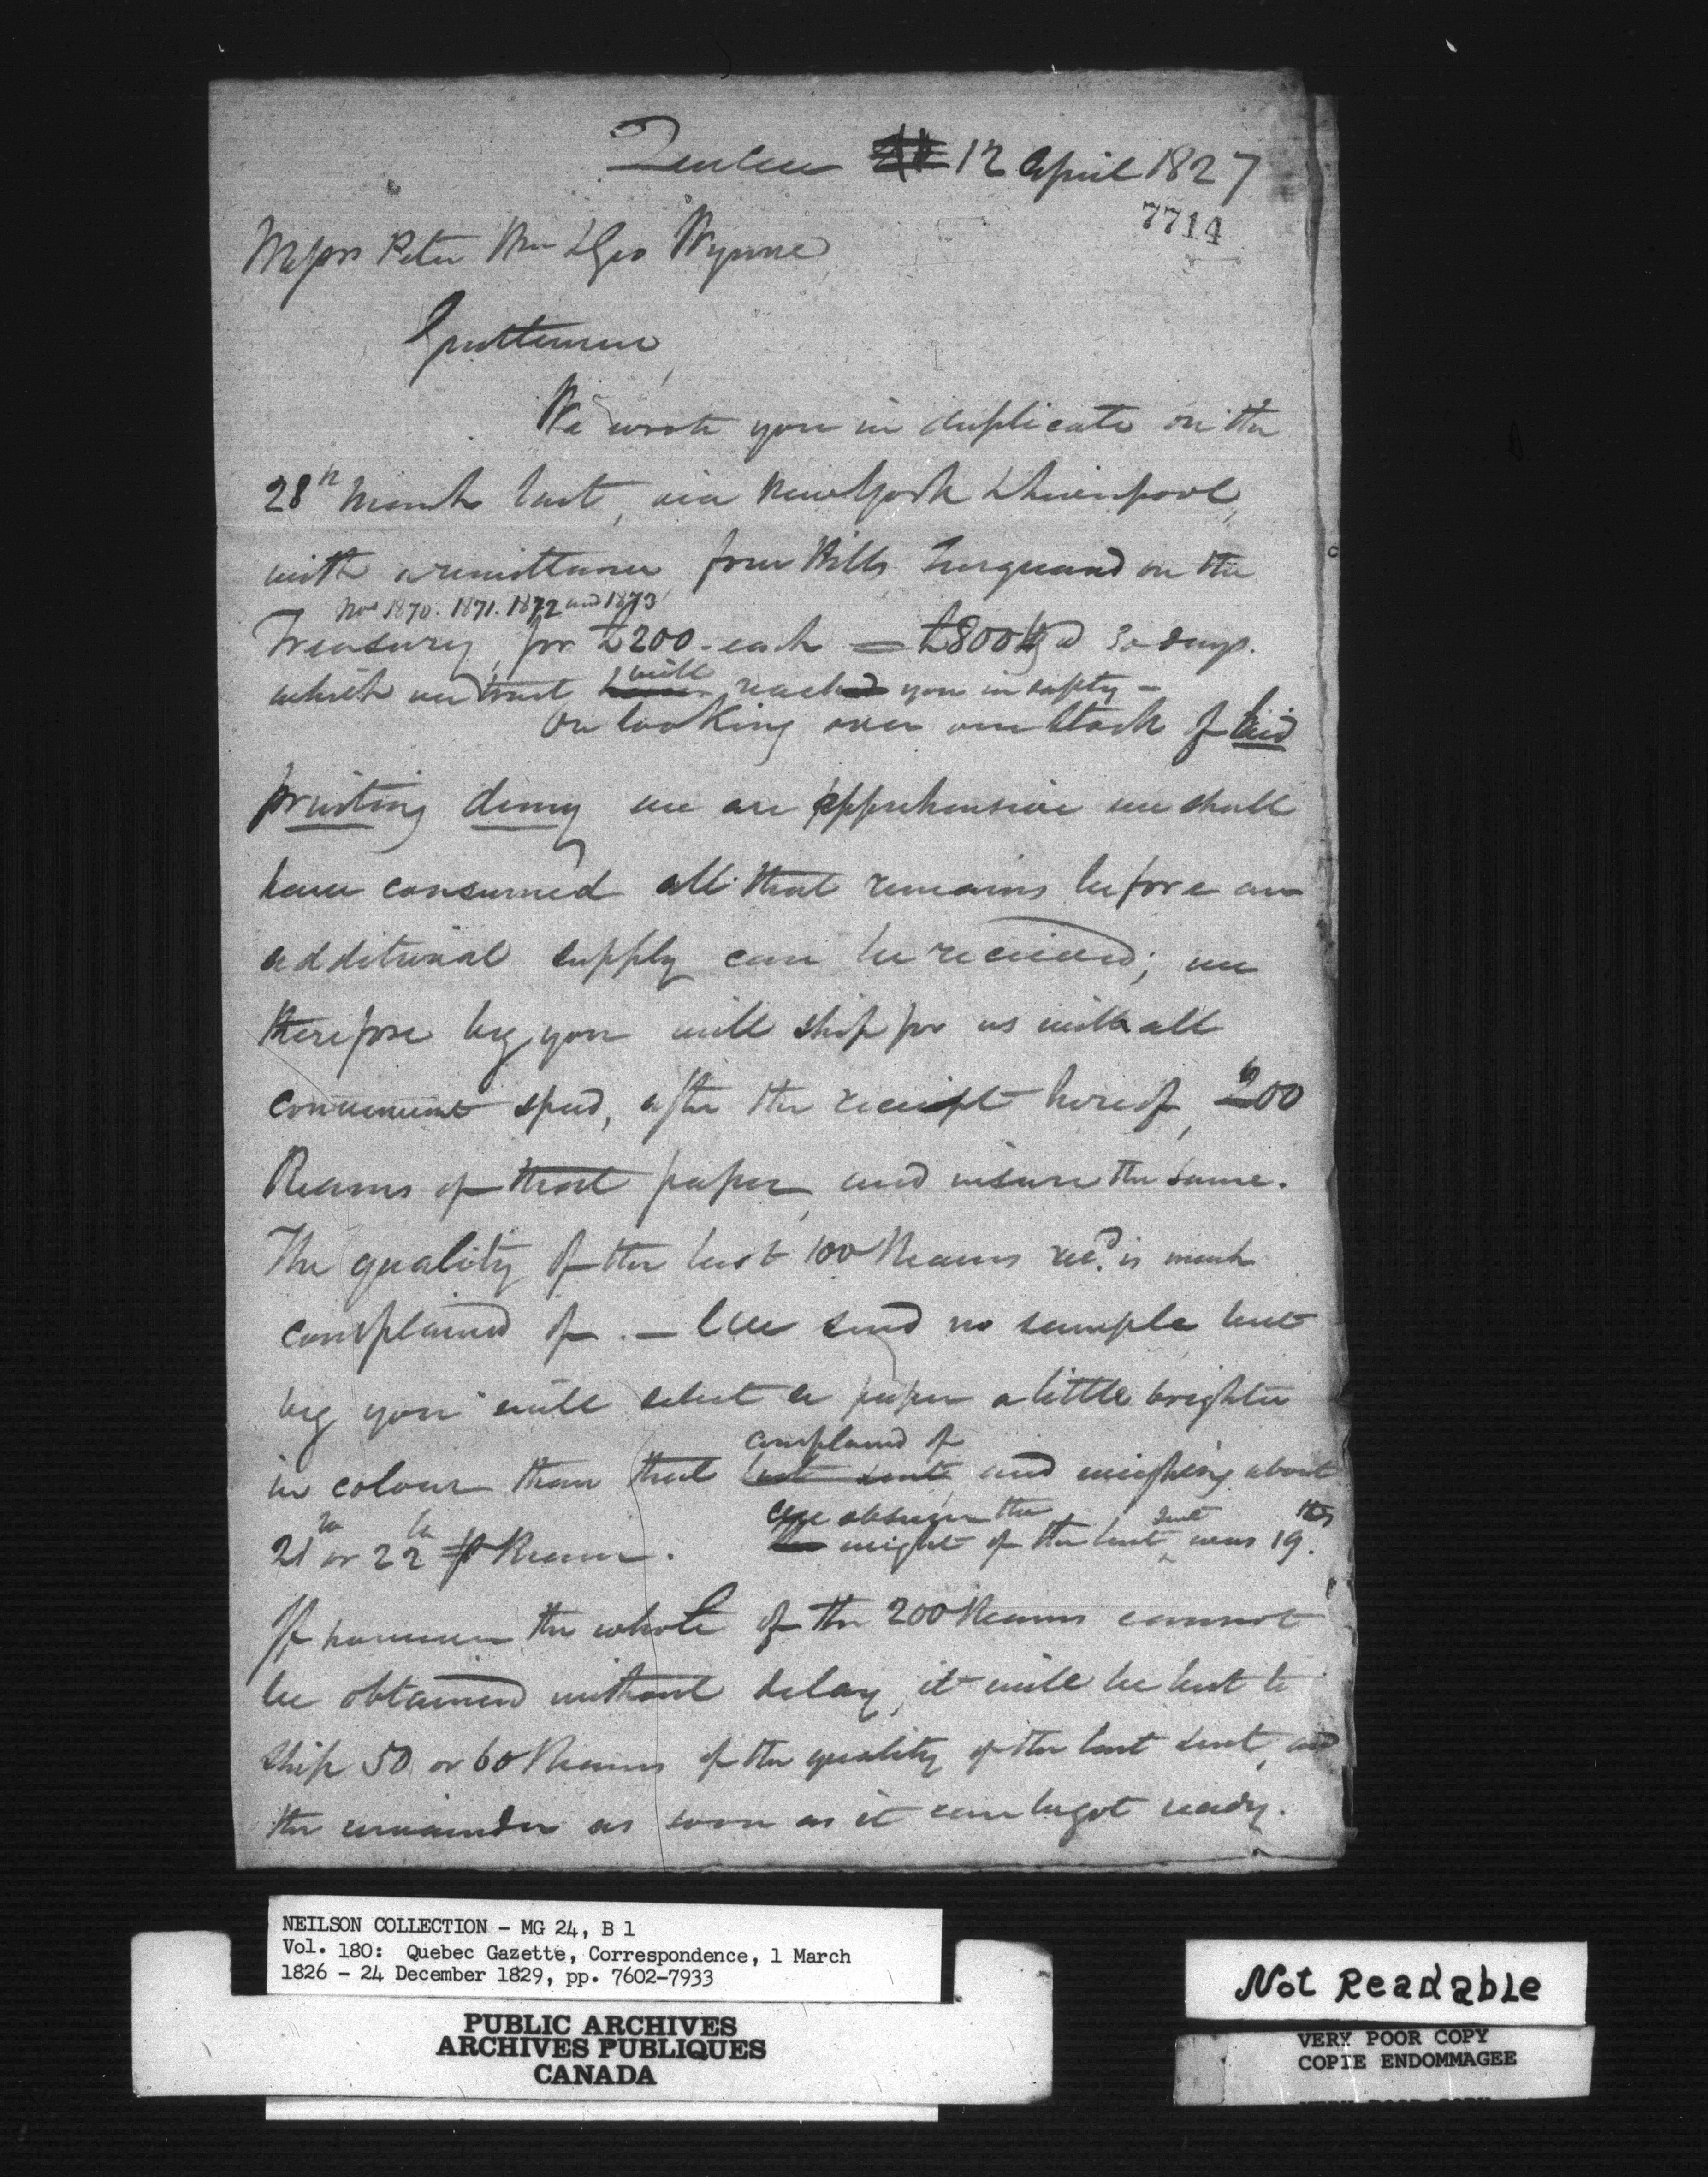 Quebec 12 April 1827
7714
Messrs Peter Wm & Geo Wynne
Gentlemen,
We wrote you in duplicate on the
28th March last, via New York & Liverpool,
with a remittance four Bills Turquand on the
Nos 1870. 1871. 1872 and 1873
Treasury, for £200 - each = £800 30 days.
will
which we trust reach you in safety -
On looking over our Stock of laid
printing demy we are apprehensive we shall
have consumed all that remains before an
additional supply can be received; we
therefore beg you will ship for us with all
convenient speed, after the receipt hereof, 200
Reams of that paper, and insure the same.
The quality of the last 100 Reams recd. is much
complained of. - We send no sample but
beg you will select a paper a little brighter
complained of
in colour than that last sent, and weighing about
We observe the sent lbs
21 lb or 22 lb Ream. weight of the last was 19.
If however the whole of the 200 Reams cannot
be obtained without delay, it will be best to
ship 50 or 60 Reams of the quality of the last sent, and
the remainder as soon as it can be got ready.
NEILSON COLLECTION - MG 24, B 1
Vol. 180: Quebec Gazette, Correspondence, 1 March
1826 - 24 December 1829, pp. 7602-7933
PUBLIC ARCHIVES
ARCHIVES PUBLIQUES
CANADA
Not Readable
VERY POOR COPY
COPIE ENDOMMAGEE